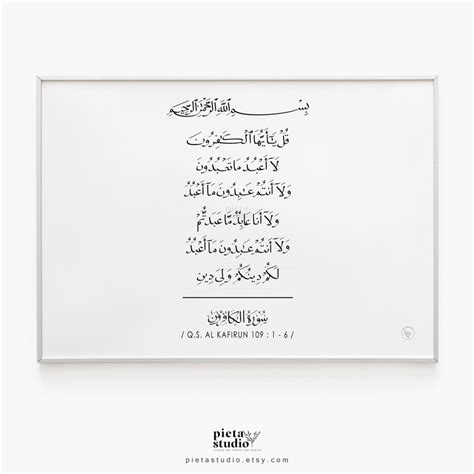 بِسْمِ اللَّهِ الرَّحْمَٰنِ الرَّحِيمِ
قُلْ يَٰٓأَيُّهَا ٱلْكَٰفِرُونَ
لَآ أَعْبُدُ مَا تَعْبُدُونَ
وَلَآ أَنتُمْ عَٰبِدُونَ مَآ أَعْبُدُ
وَلَآ أَنَا۠ عَابِدٌ مَّا عَبَدتُّمْ
وَلَآ أَنتُمْ عَٰبِدُونَ مَآ أَعْبُدُ
لَكُمْ دِينُكُمْ وَلِىَ دِينِ
سُورَةُ الكَافِرُونَ
/ Q.S. AL KAFIRUN 109 : 1 - 6 /
pieta
studio
pietastudio.etsy.com